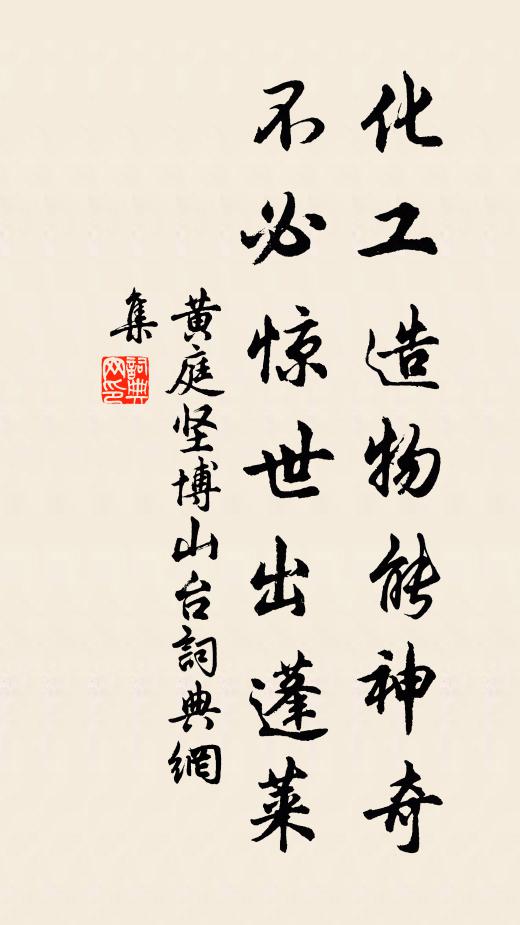 化工造物能神奇
不必惊世出蓬莱
黄庭坚博山台詞典網
集
詞典網印